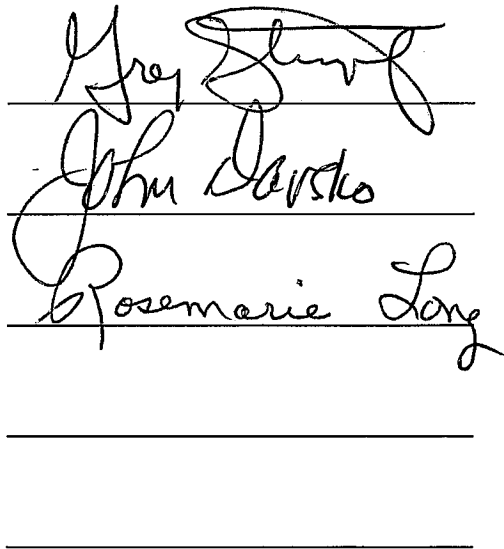 Greg Stumpf
John Davsko
Rosemarie Long